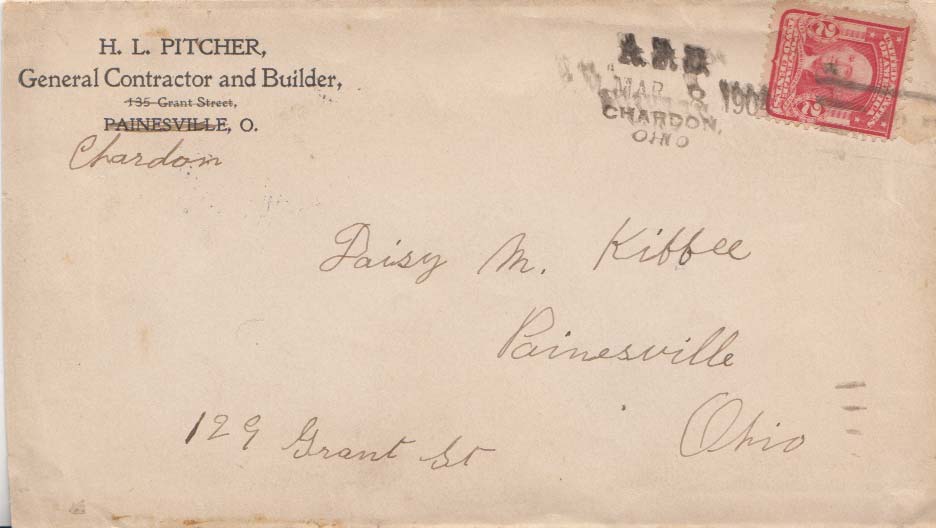 H. L. PITCHER,
General Contractor and Builder,
135 Grant Street,
PAINESVILLE, O.
Chardon
MAR
CHARDON,
OHIO
Daisy M. Kibbee
Painesville
Ohio
129 Grant St